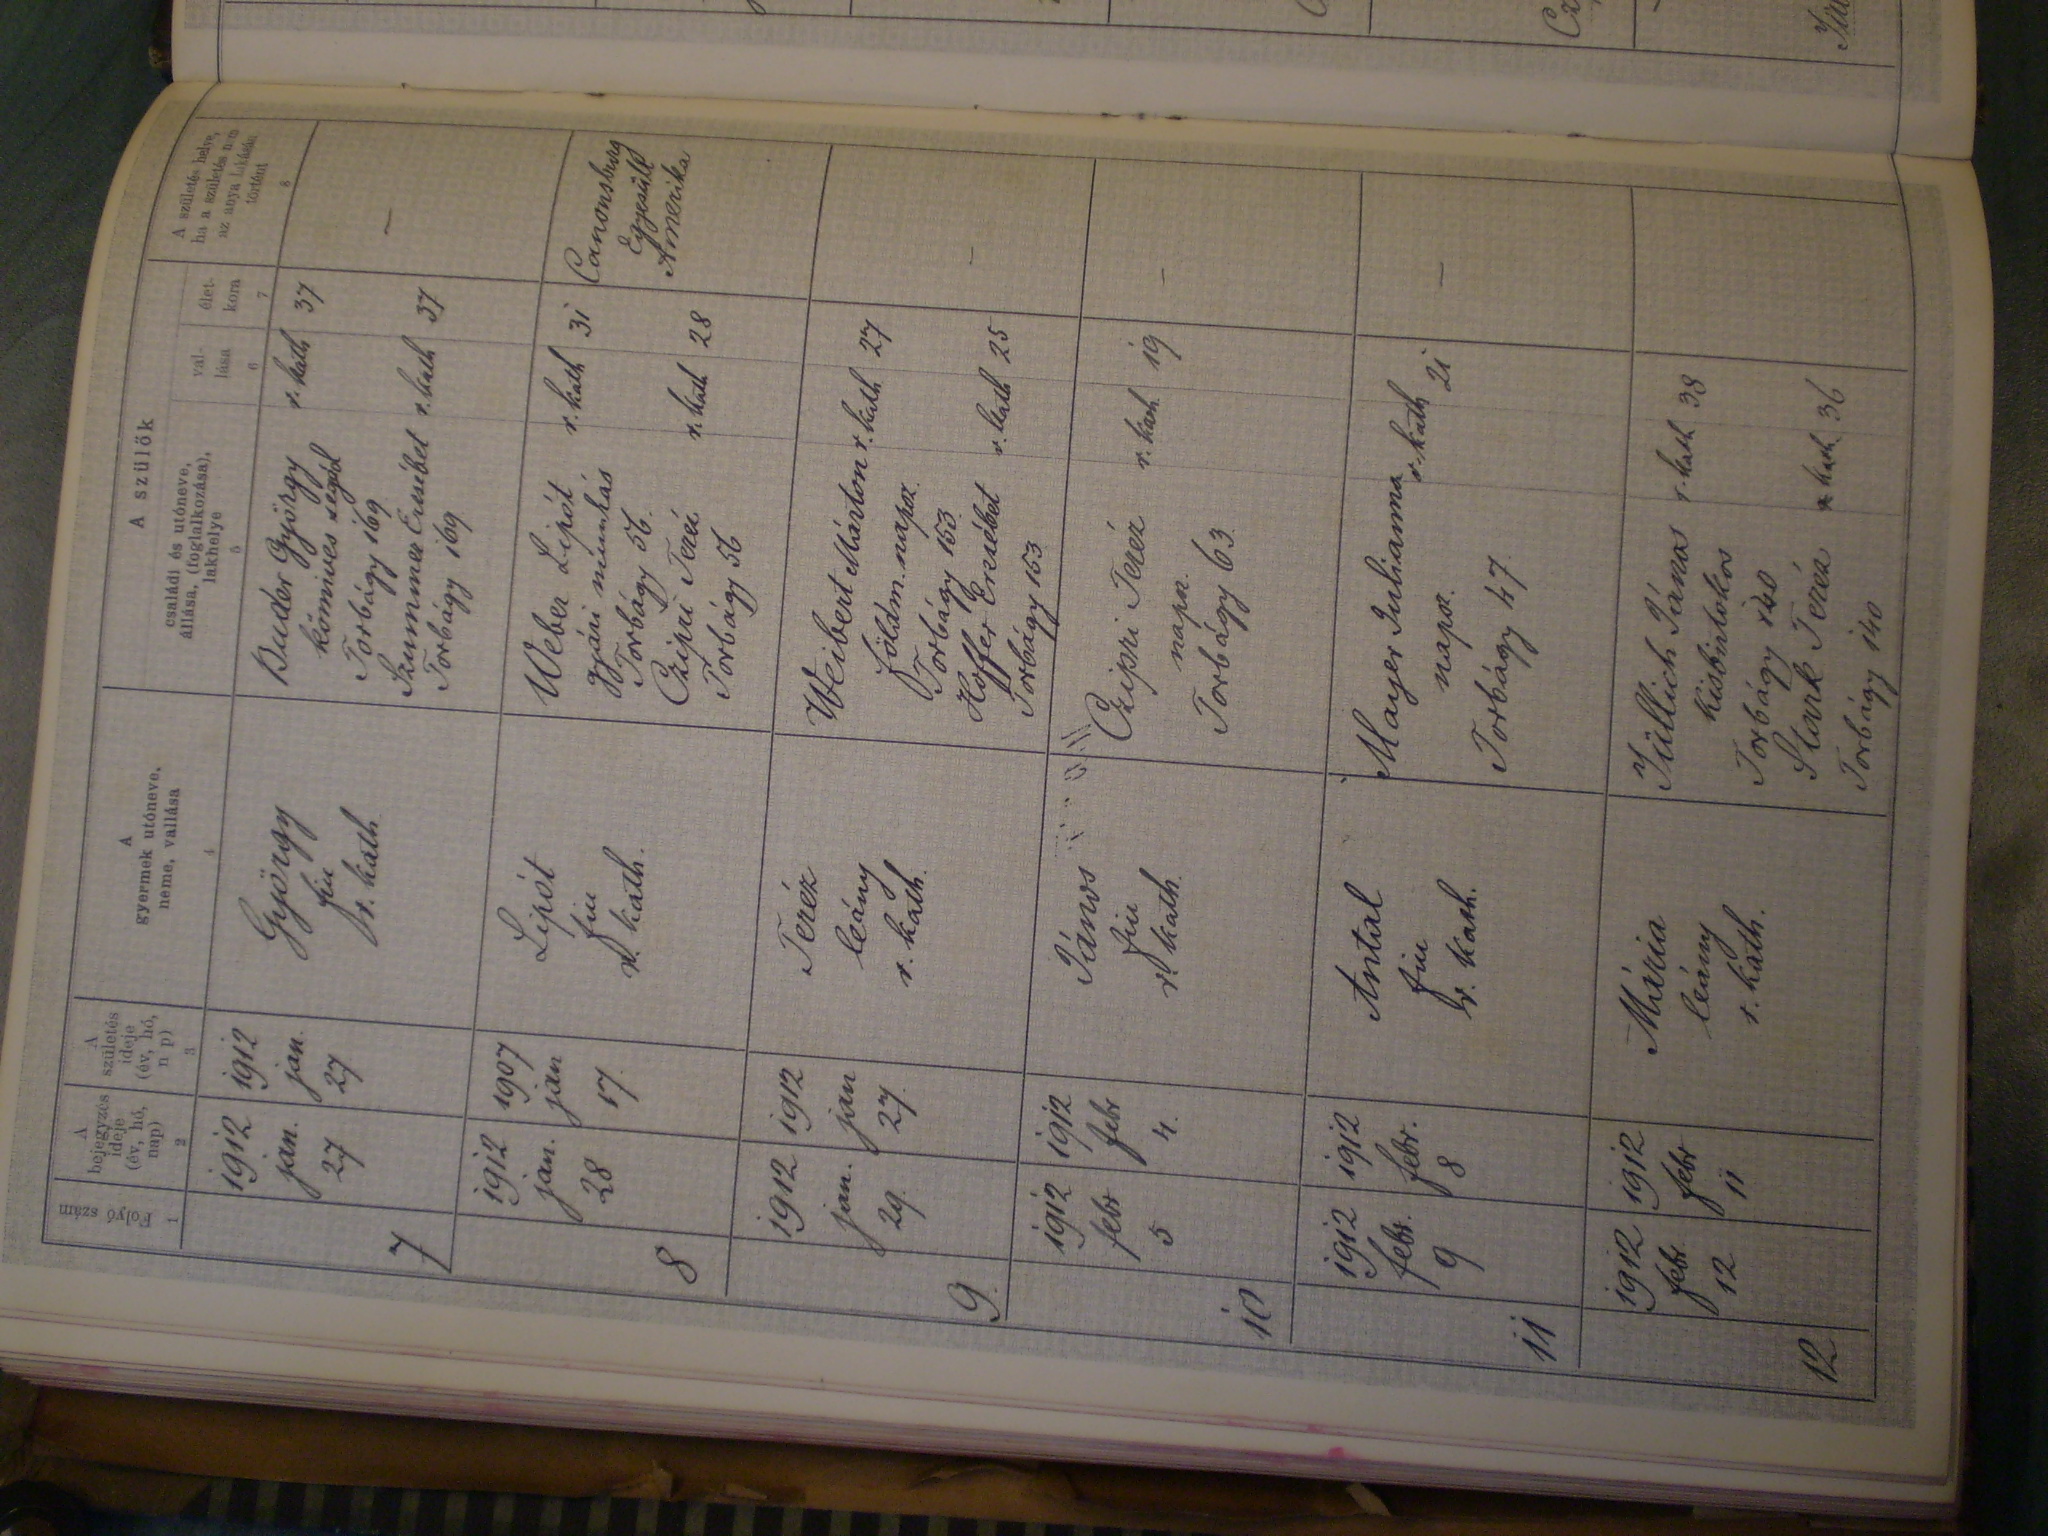 Folyó szám
1
A
bejegyzés
ideje
(év, hó,
nap)
2
A
születés
ideje
(év, hó,
n p)
3
A
gyermek utóneve,
neme, vallása
4
A szülők
családi és utóneve,
állása, (foglalkozása),
lakhelye
5
val-
lása
6
élet-
kora
7
A születés helye,
ha a születés nem
az anya lakásán
történt
8
7
1912
jan.
27
1912
jan.
27
György
fiu
r. kath.
Buder György
kömives segéd
Torbágy 169
Erzsébet
Torbágy 169
r. kath 37
r. kath 37
—
8
1912
jan.
28
1907
jan
17
Lipót
fiu
r. kath.
Weber Lipót
gyári munkás
Torbágy 56.
Czipri Teréz
Torbágy 56
r. kath 31
r. kath 28
Canonsburg
Egyesült
Amerika
9.
1912
jan.
29.
1912
jan
27.
Teréz
leány
r. kath.
Weibert Márton
földm. napsz.
Torbágy 153.
Hoffer Erzsébet
Torbágy 153
r. kath 27
r. kath 25
—
10
1912
febr
5
1912
febr
4.
János
fiu
r. kath.
Czipri Teréz
napsz.
Torbágy 63.
r. kath. 19
—
11
1912
febr.
9
1912
febr.
8
Antal
fiu
r. kath.
Mayer Julianna
napsz.
Torbágy 47.
r. kath 21
—
12
1912
febr.
12
1912
febr
11
Mária
leány
r. kath.
János
kisbirtokos
Torbágy
Stark Teréz
Torbágy 140
r. kath 38
r. kath 36